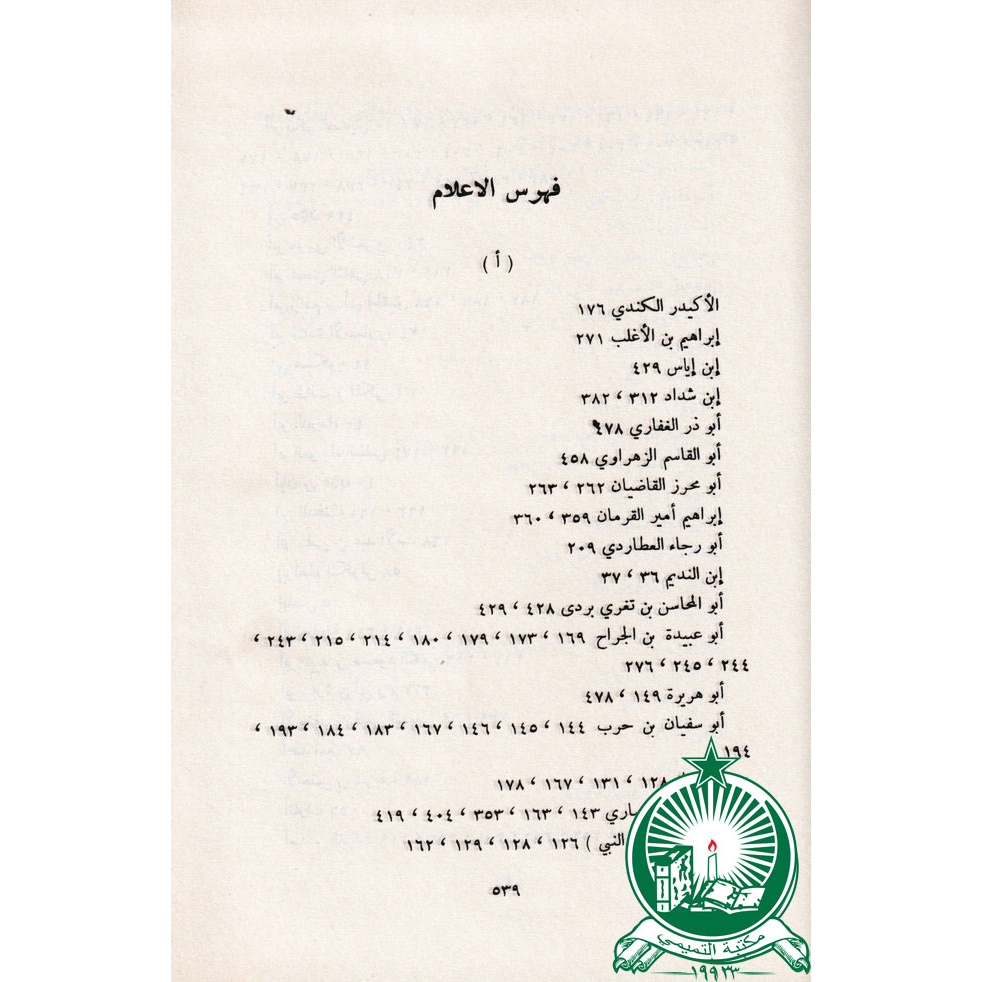 فهرس الاعلام
( أ )
الأكيدر الكندي ١٧٦
إبراهيم بن الأغلب ٢٧١
إبن إياس ٤٢٩
إبن شداد ٣١٢ ، ٣٨٢
أبو ذر الغفاري ٤٧٨
أبو القاسم الزهراوي ٤٥٨
أبو محرز القاضيان ٢٦٢ ، ٢٦٣
إبراهيم أمير القرمان ٣٥٩ ، ٣٦٠
أبو رجاء العطاردي ٢٠٩
إبن النديم ٣٦ ، ٣٧
أبو المحاسن بن تغري بردى ٤٢٨ ، ٤٢٩
أبو عبيدة بن الجراح ١٦٩ ، ١٧٣ ، ١٧٩ ، ١٨٠ ، ٢١٤ ، ٢١٥ ، ٢٤٣ ،
٢٤٤ ، ٢٤٥ ، ٢٧٦
أبو هريرة ١٤٩ ، ٤٧٨
أبو سفيان بن حرب ١٤٤ ، ١٤٥ ، ١٤٦ ، ١٦٧ ، ١٨٣ ، ١٨٤ ، ١٩٣ ،
١٩٤
١٢٨ ، ١٣١ ، ١٦٧ ، ١٧٨
١٤٣ ، ١٦٣ ، ٣٥٣ ، ٤٠٤ ، ٤١٩
النبي ) ١٢٦ ، ١٢٨ ، ١٢٩ ، ١٦٢
٥٣٩
مكتبة التميمي